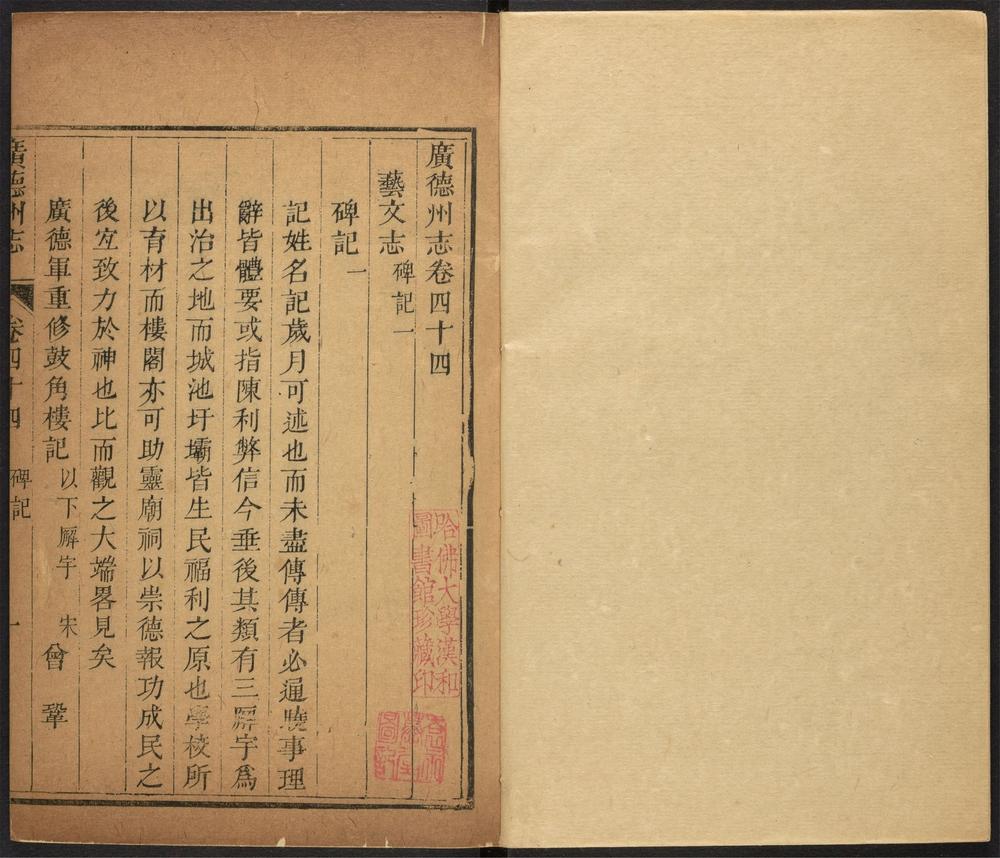 廣德州志卷四十四
藝文志 碑記一
碑記一
記姓名記歲月可述也而未盡傳傳者必通曉事理
辭皆體要或指陳利弊信今垂後其類有三廨宇爲
出治之地而城池圩壩皆生民福利之原也學校所
以育材而樓閣亦可助靈廟祠以崇德報功成民之
後宐致力於神也比而觀之大端畧見矣
廣德軍重修鼓角樓記 以下廨宇 宋 曾鞏
廣德州志 卷四十四 碑記 一
哈佛大學漢和
圖書館珍藏印